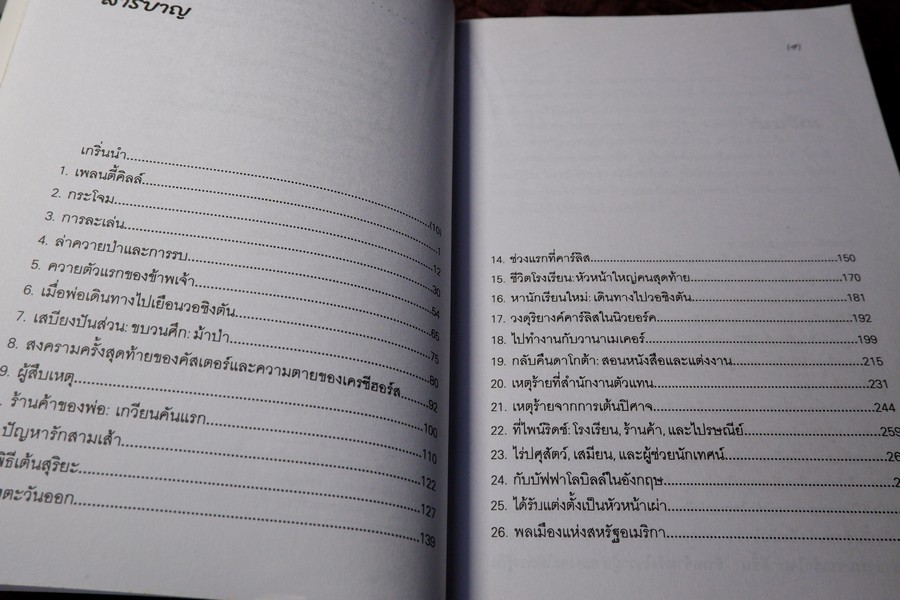 สารบาญ
เกริ่นนำ
1. เพลนตี้คิลล์..........(10)
2. กระโจม..........1
3. การละเล่น..........12
4. ล่าควายป่าและการรบ..........30
5. ควายตัวแรกของข้าพเจ้า..........54
6. เมื่อพ่อเดินทางไปเยือนวอชิงตัน..........65
7. เสบียงปันส่วน: ขบวนศึก: ม้าป่า..........75
8. สงครามครั้งสุดท้ายของคัสเตอร์และความตายของเครซีฮอร์ส..........80
9. ผู้สืบเหตุ..........92
. ร้านค้าของพ่อ: เกวียนคันแรก..........100
ปัญหารักสามเส้า..........110
พิธีเต้นสุริยะ..........122
ตะวันออก..........127
139
(๙)
14. ช่วงแรกที่คาร์ลิส..........150
15. ชีวิตโรงเรียน: หัวหน้าใหญ่คนสุดท้าย..........170
16. หานักเรียนใหม่: เดินทางไปวอชิงตัน..........181
17. วงดุริยางค์คาร์ลิสในนิวยอร์ค..........192
18. ไปทำงานกับวานาเมเคอร์..........199
19. กลับคืนดาโกต้า: สอนหนังสือและแต่งงาน..........215
20. เหตุร้ายที่สำนักงานตัวแทน..........231
21. เหตุร้ายจากการเต้นปิศาจ..........244
22. ที่ไพน์ริดซ์: โรงเรียน, ร้านค้า, และไปรษณีย์..........259
23. ไร่ปศุสัตว์, เสมียน, และผู้ช่วยนักเทศน์..........26
24. กับบัฟฟาโลบิลล์ในอังกฤษ..........2
25. ได้รับแต่งตั้งเป็นหัวหน้าเผ่า..........
26. พลเมืองแห่งสหรัฐอเมริกา..........